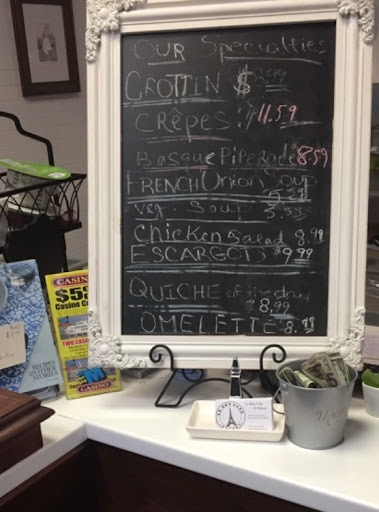 OUR Specialties
CROTTIN $
CRÊPES $11.59
Basque Piperade $8.59
FRENCH Onion Soup
5.59
Veg. Soup 5.55
Chicken Salad 8.99
ESCARGOTS $9.99
QUICHE of the day
$8.99
OMELETTE 8.99
CASINO
$5
Casino
TWO
CASINO
RECIPES
& OTHER
STORIES